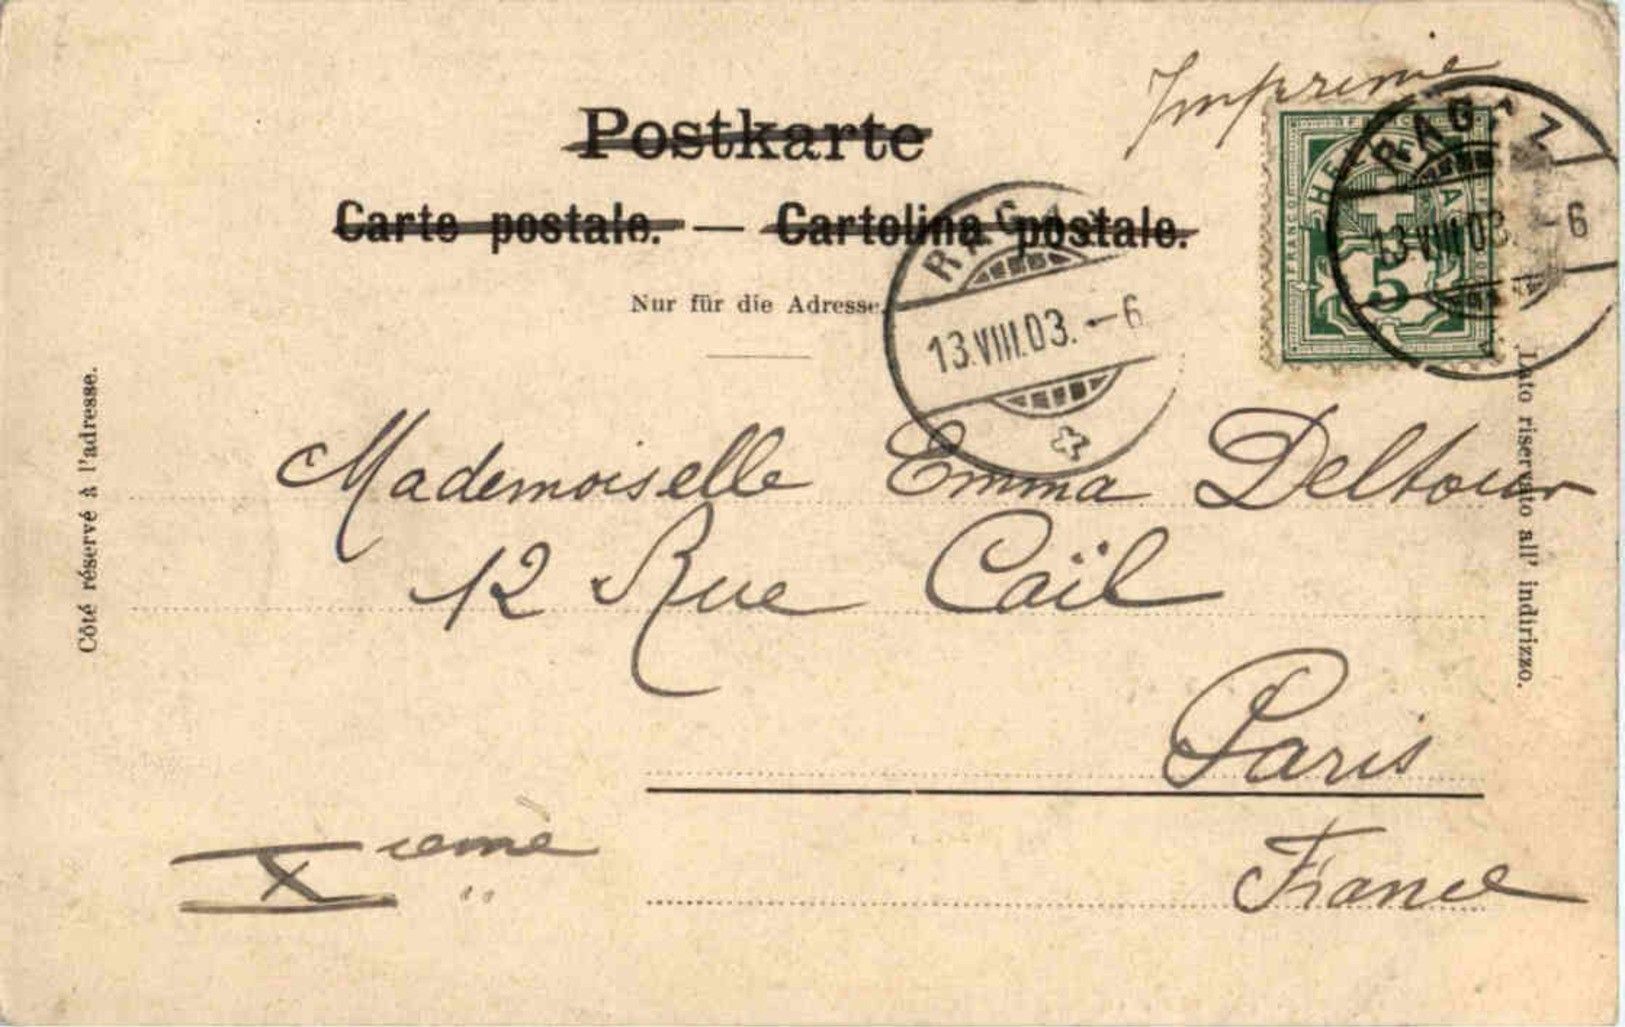 Imprimé
Postkarte
Carte postale. — Cartolina postale.
Nur für die Adresse.
RAGAZ
13.VIII.03.-6
HELVETIA
FRANCO
5
RAGAZ
13.VIII.03.-6
Côté réservé à l'adresse.
Lato riservato all' indirizzo.
Mademoiselle Emma Deltour
12 Rue Caïl
Paris
Xième
France